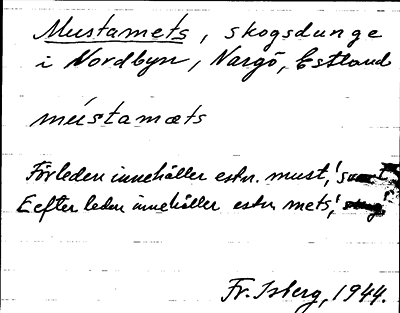 Mustamets, skogsdunge
i Nordbyn, Nargö, Estland
mústamæts
Förleden innehåller estn. must,
Eefter leden innehåller estn mets,
Fr. Isberg, 1944.